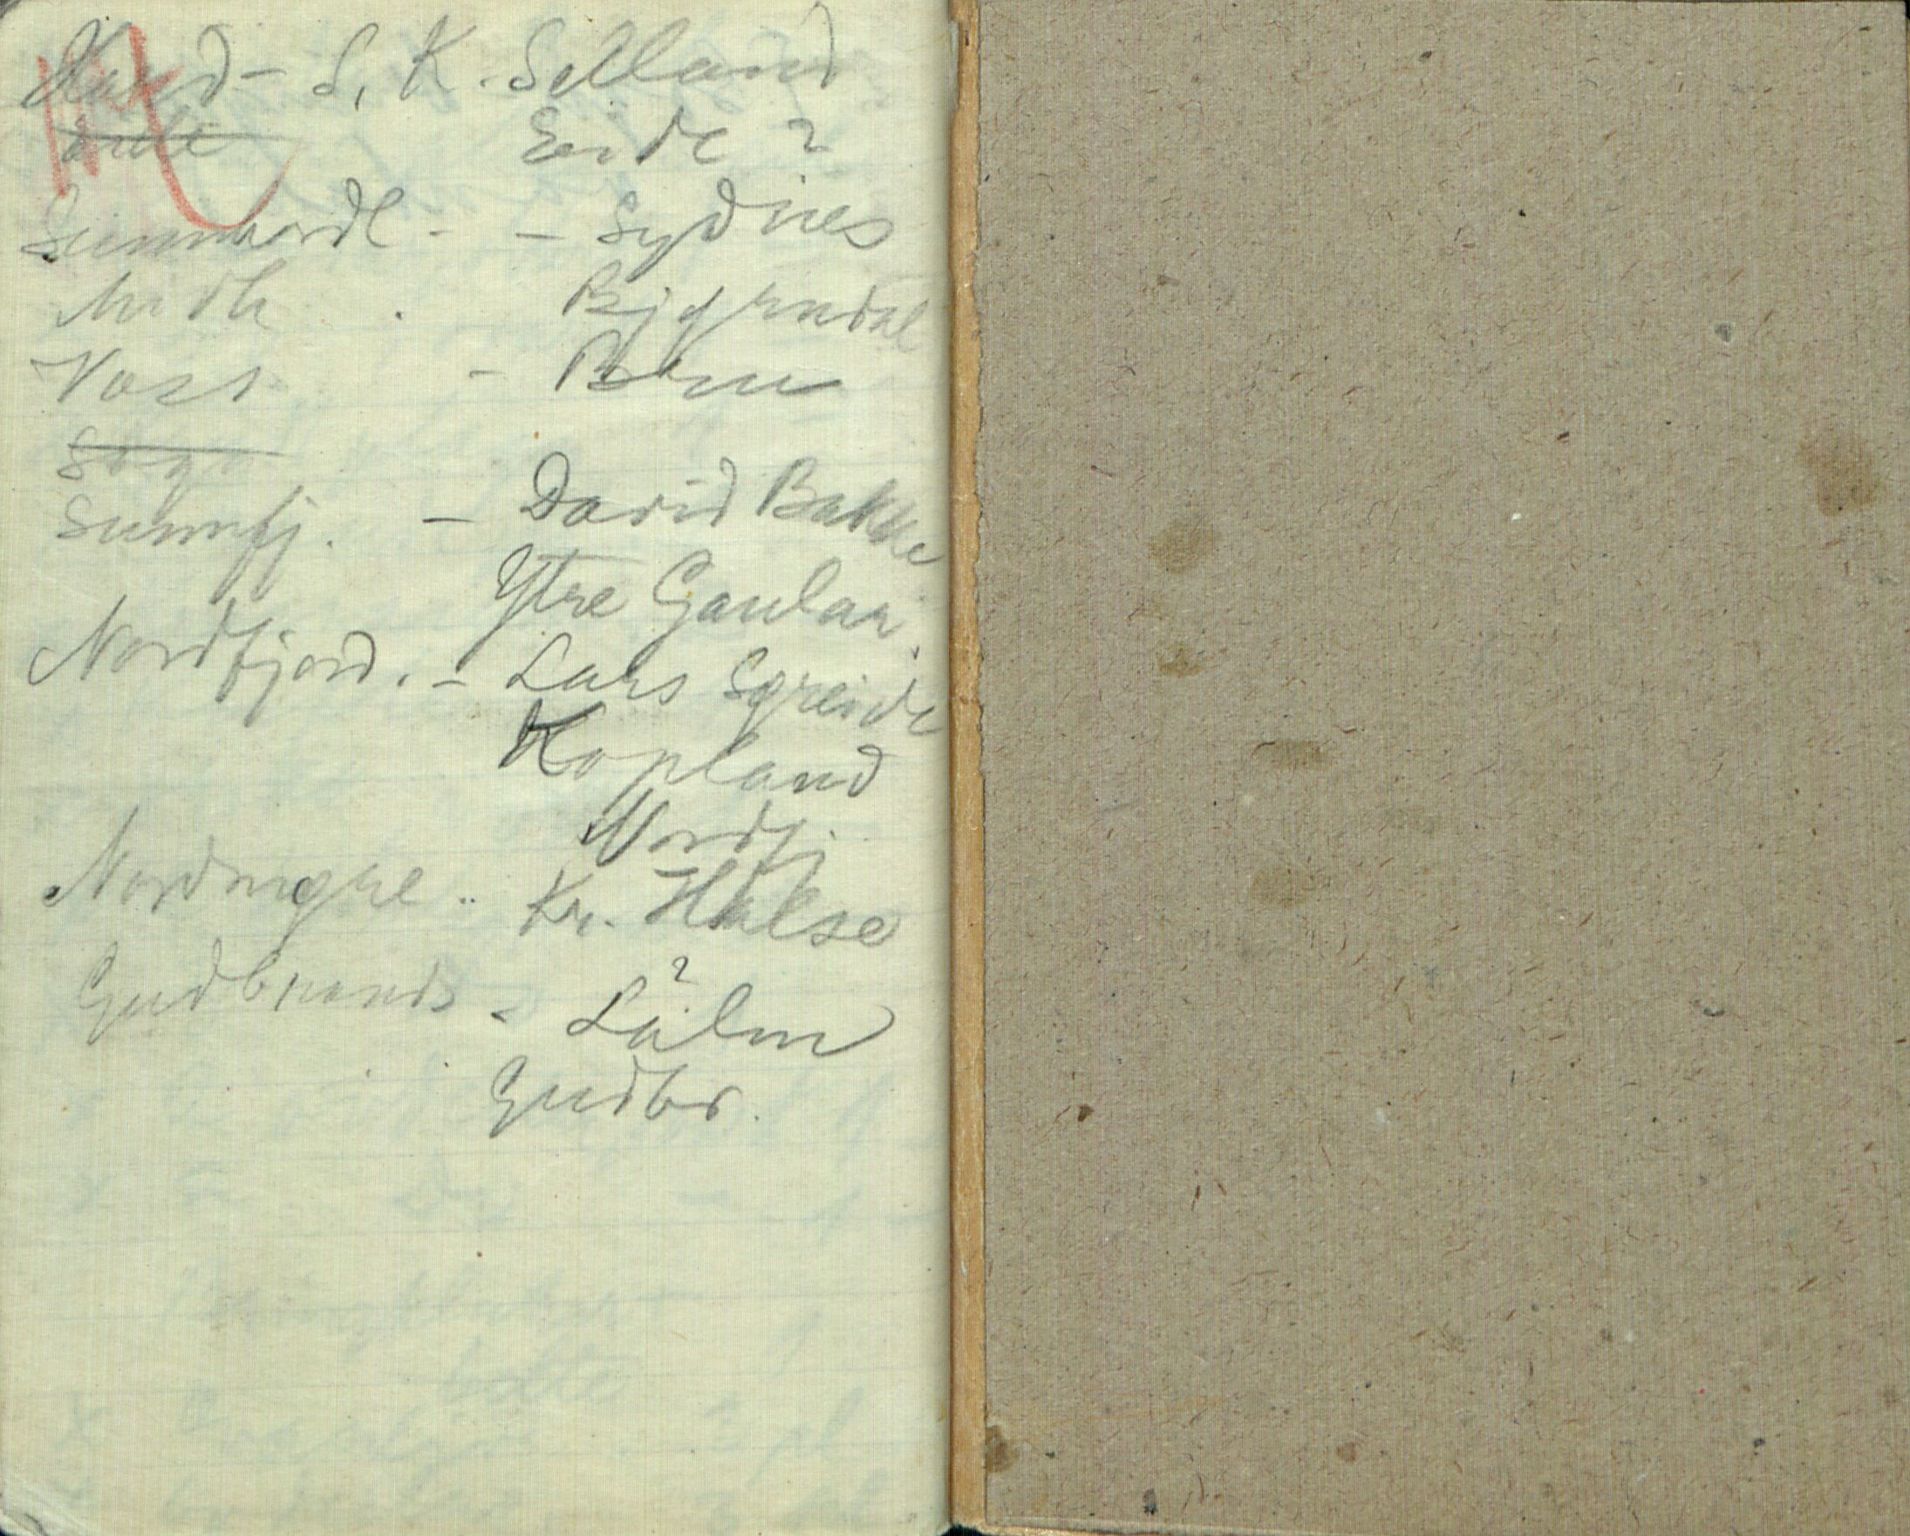 Hard - S. K. Selland
Eide ?
Sunnhordl. - - Sydnes
Midh. Bjørndal
Voss - Bøm
Sogn
Sunnfj. - David Bakke
Ytre Gaular.
Nordfjord. - Lars Sgreide
Kopland
Nordfj.
Nordmøre .. Kr. Halse
Gudbrands - Lalm ?
Gudbr.